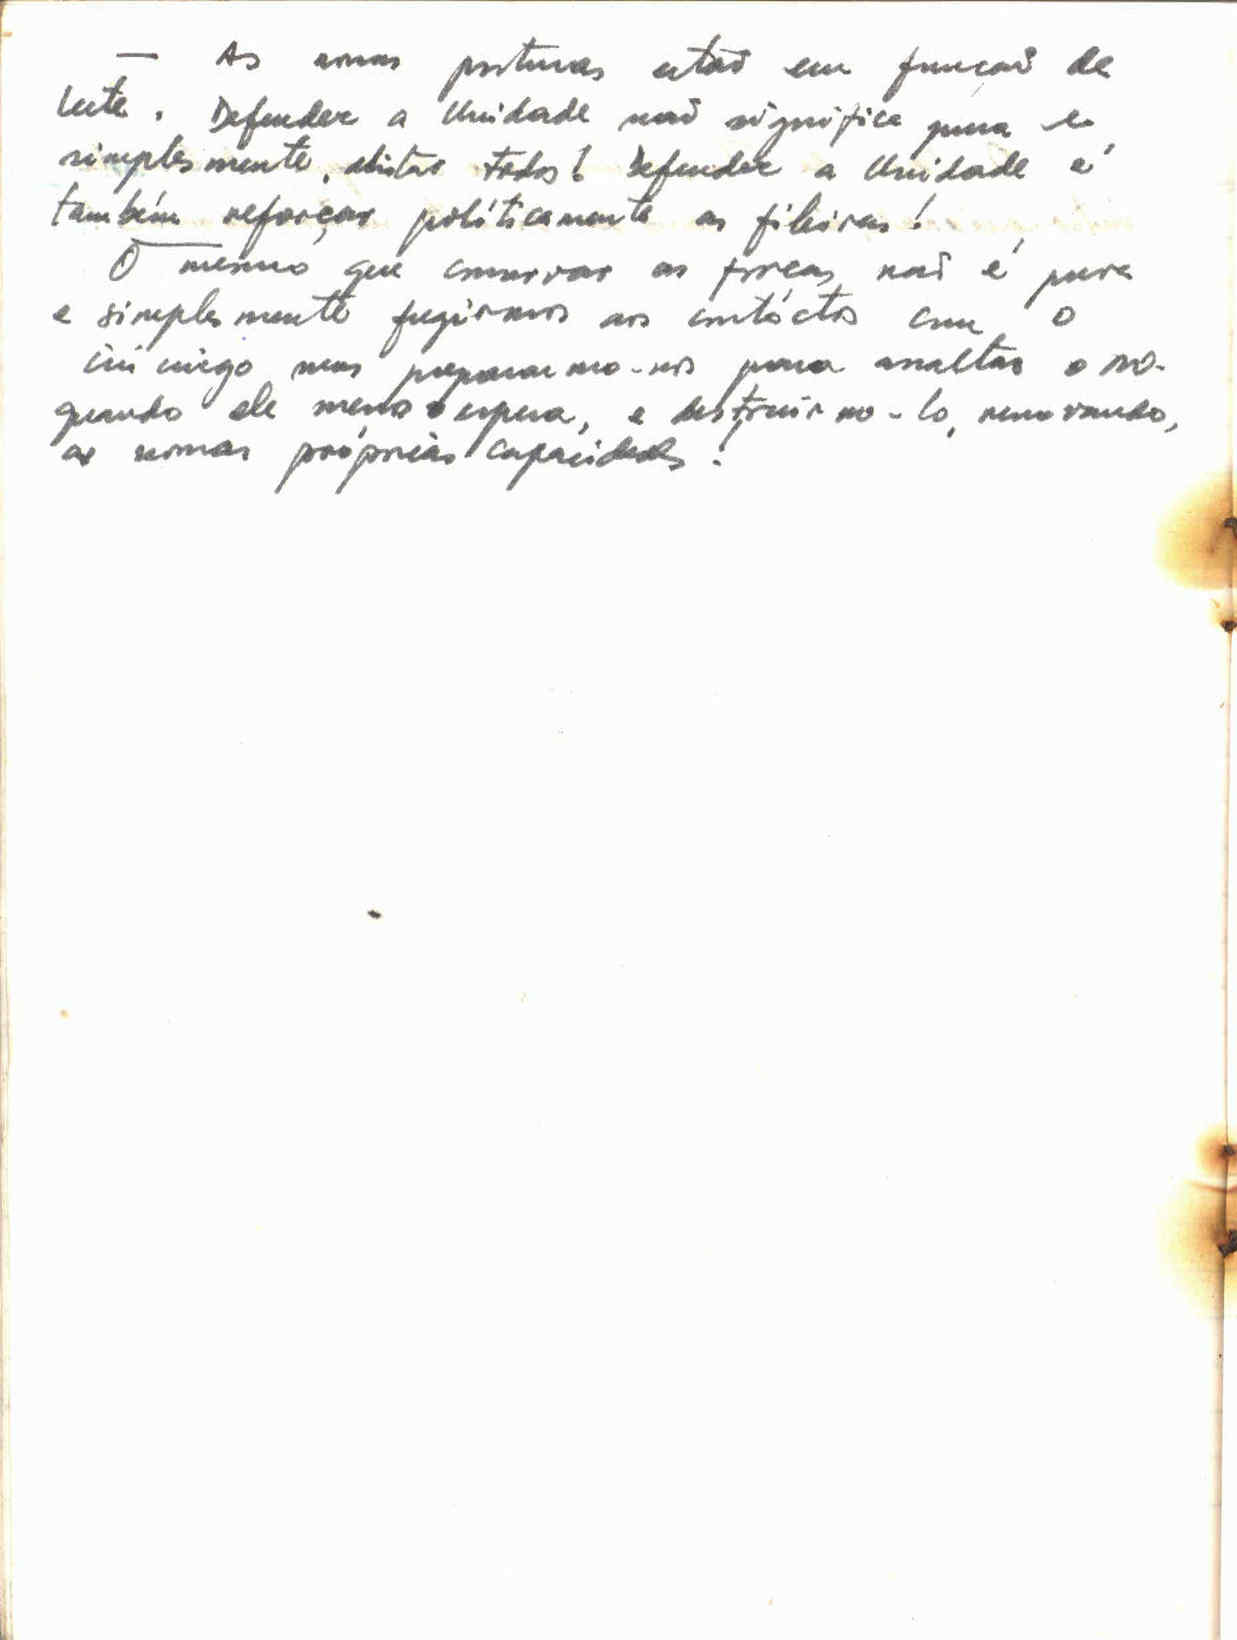 — As nossas posturas estão em função da
luta. Defender a Unidade não significa pura e
simplesmente, alistar todos! Defender a Unidade é
também reforçar políticamente as fileiras!
O mesmo que conservar as forças não é pura
e simplesmente fugirmos aos contáctos com o
inimigo mas prepararmo-nos para assaltar o
quando ele menos espera, e destruirmo-lo, renovando,
as nossas próprias capacidades!